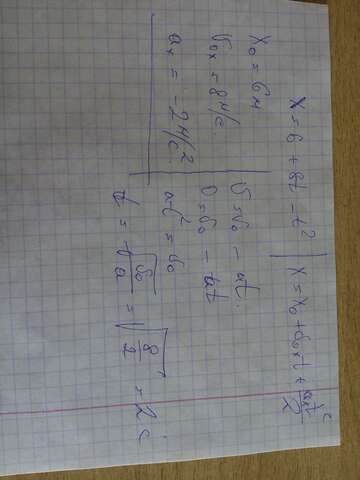 x = 6 + 8t - t² | x = x₀ + v₀ₓt + aₓt²/2
x₀ = 6 м
v₀ₓ = 8 м/с
aₓ = -2 м/с²
v = v₀ - at.
0 = v₀ - at
at² = v₀
t = √(v₀/a) = √(8/2) = 2 с